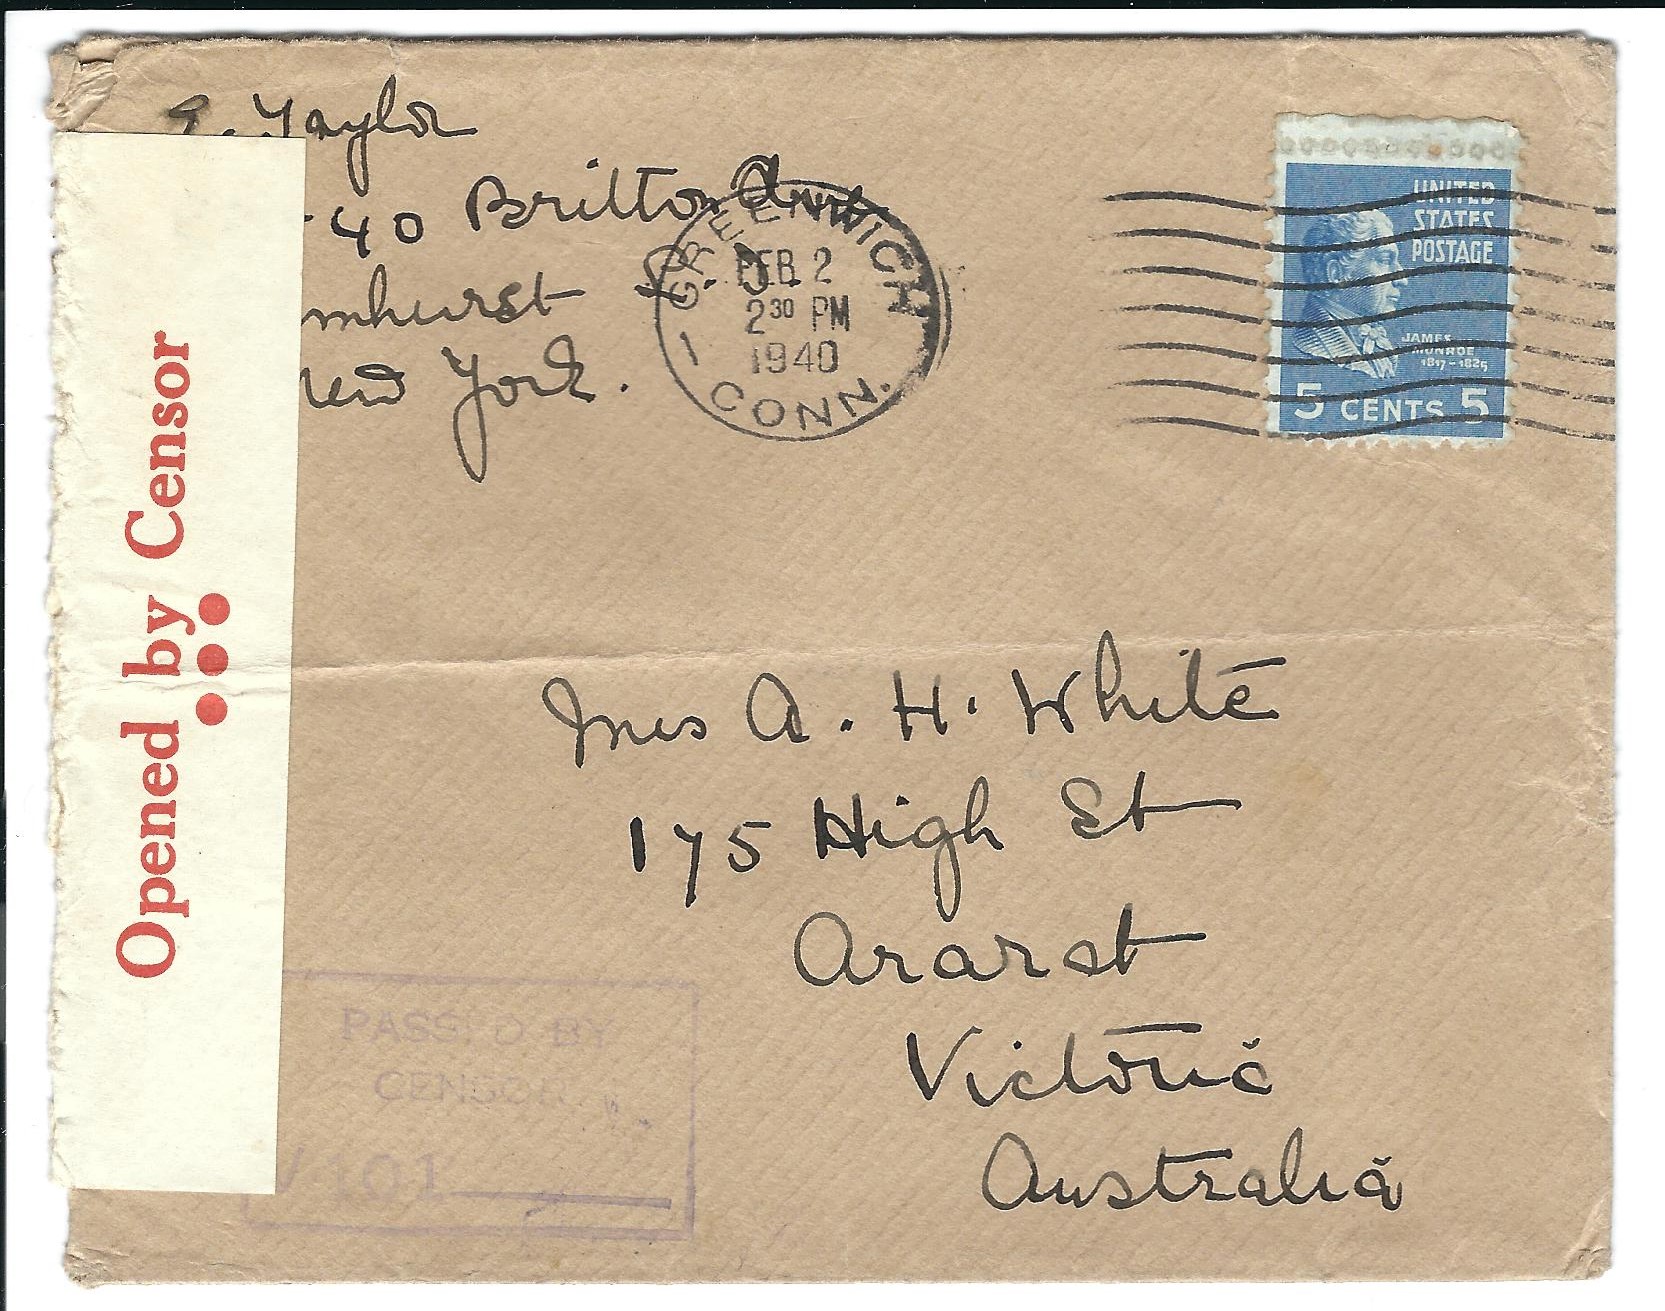 E. Taylor
40 Britton Ave
mhurst L. I.
New York.
GREENWICH
FEB 2
2 30 PM
1940
1
CONN.
UNITED
STATES
POSTAGE
JAMES
MONROE
1817-1825
5 CENTS 5
Opened by Censor
Mrs A. H. White
175 High St
Ararat
Victoria
Australia
PASSED BY
CENSOR
V 101